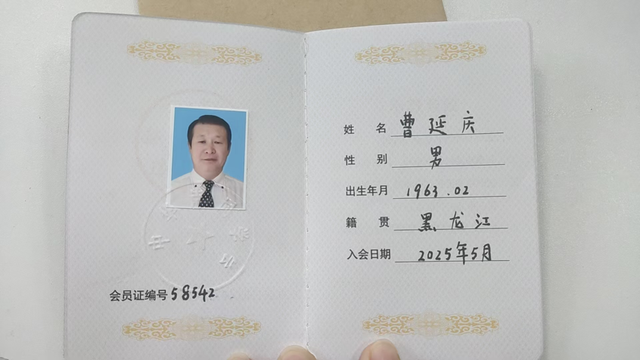 会员证编号 58542
姓 名 曹延庆
性 别 男
出生年月 1963.02
籍 贯 黑龙江
入会日期 2025年5月